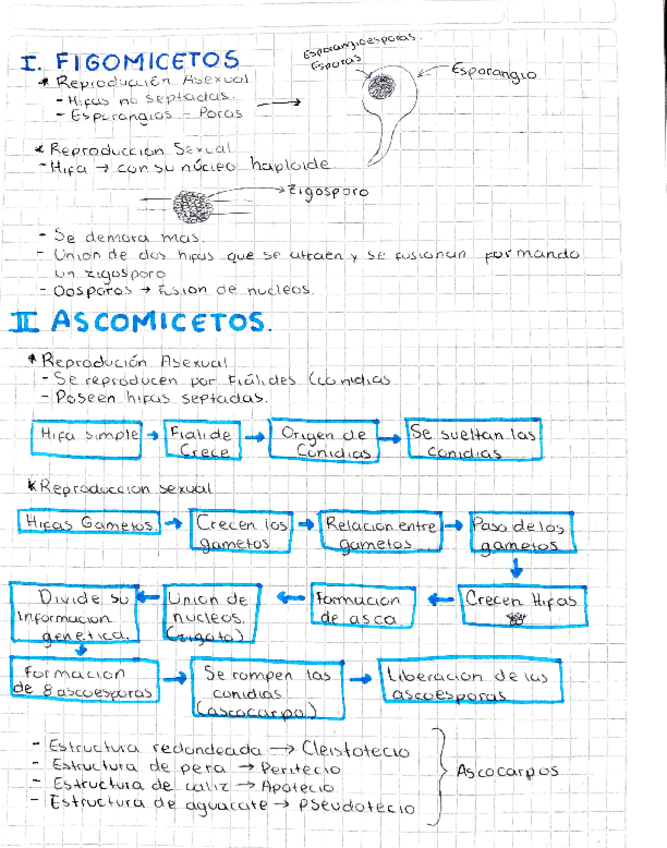 I. FIGOMICETOS
* Reproducción Asexual
- Hifas no septadas.
- Esporangios - Poros
Esporangioesporas.
Esporas
Esporangio
* Reproduccion Sexual
- Hifa → con su núcleo haploide.
Zigosporo
- Se demora mas.
- Union de dos hifas que se atraen y se fusionan formando
un zigosporo
- Oosporos → Fusion de nucleos.
II ASCOMICETOS.
* Reprodución Asexual
- Se reproducen por Fiálides (conidias
- Poseen hifas septadas.
Hifa simple → Fialide Crece → Origen de Conidias → Se sueltan las conidias
* Reproduccion sexual
Hifas Gametos. → Crecen los gametos → Relacion entre gametos → Paso de los gametos
Crecen Hifas
Formacion de asca
Union de nucleos. (zigoto)
Divide su informacion genetica.
Formacion de 8 ascoesporas → Se rompen las conidias (ascocarpo) → Liberacion de las ascoesporas
- Estructura redondeada → Cleistotecio
- Estructura de pera → Peritecio
- Estructura de caliz → Apotecio
- Estructura de aguacate → Pseudotecio
Ascocarpos